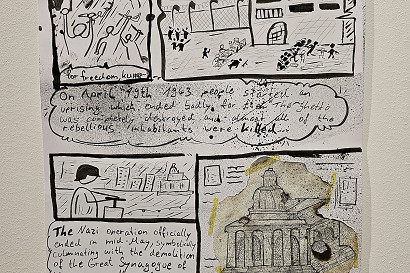 for freedom, kurwa
On April 19th 1943 people started an
uprising which ended badly for them. The ghetto
was completely destroyed and almost all of the
rebellious inhabitants were killed...
The Nazi operation officially
ended in mid-May, symbolically
culminating with the demolition
of the Great Synagogue of